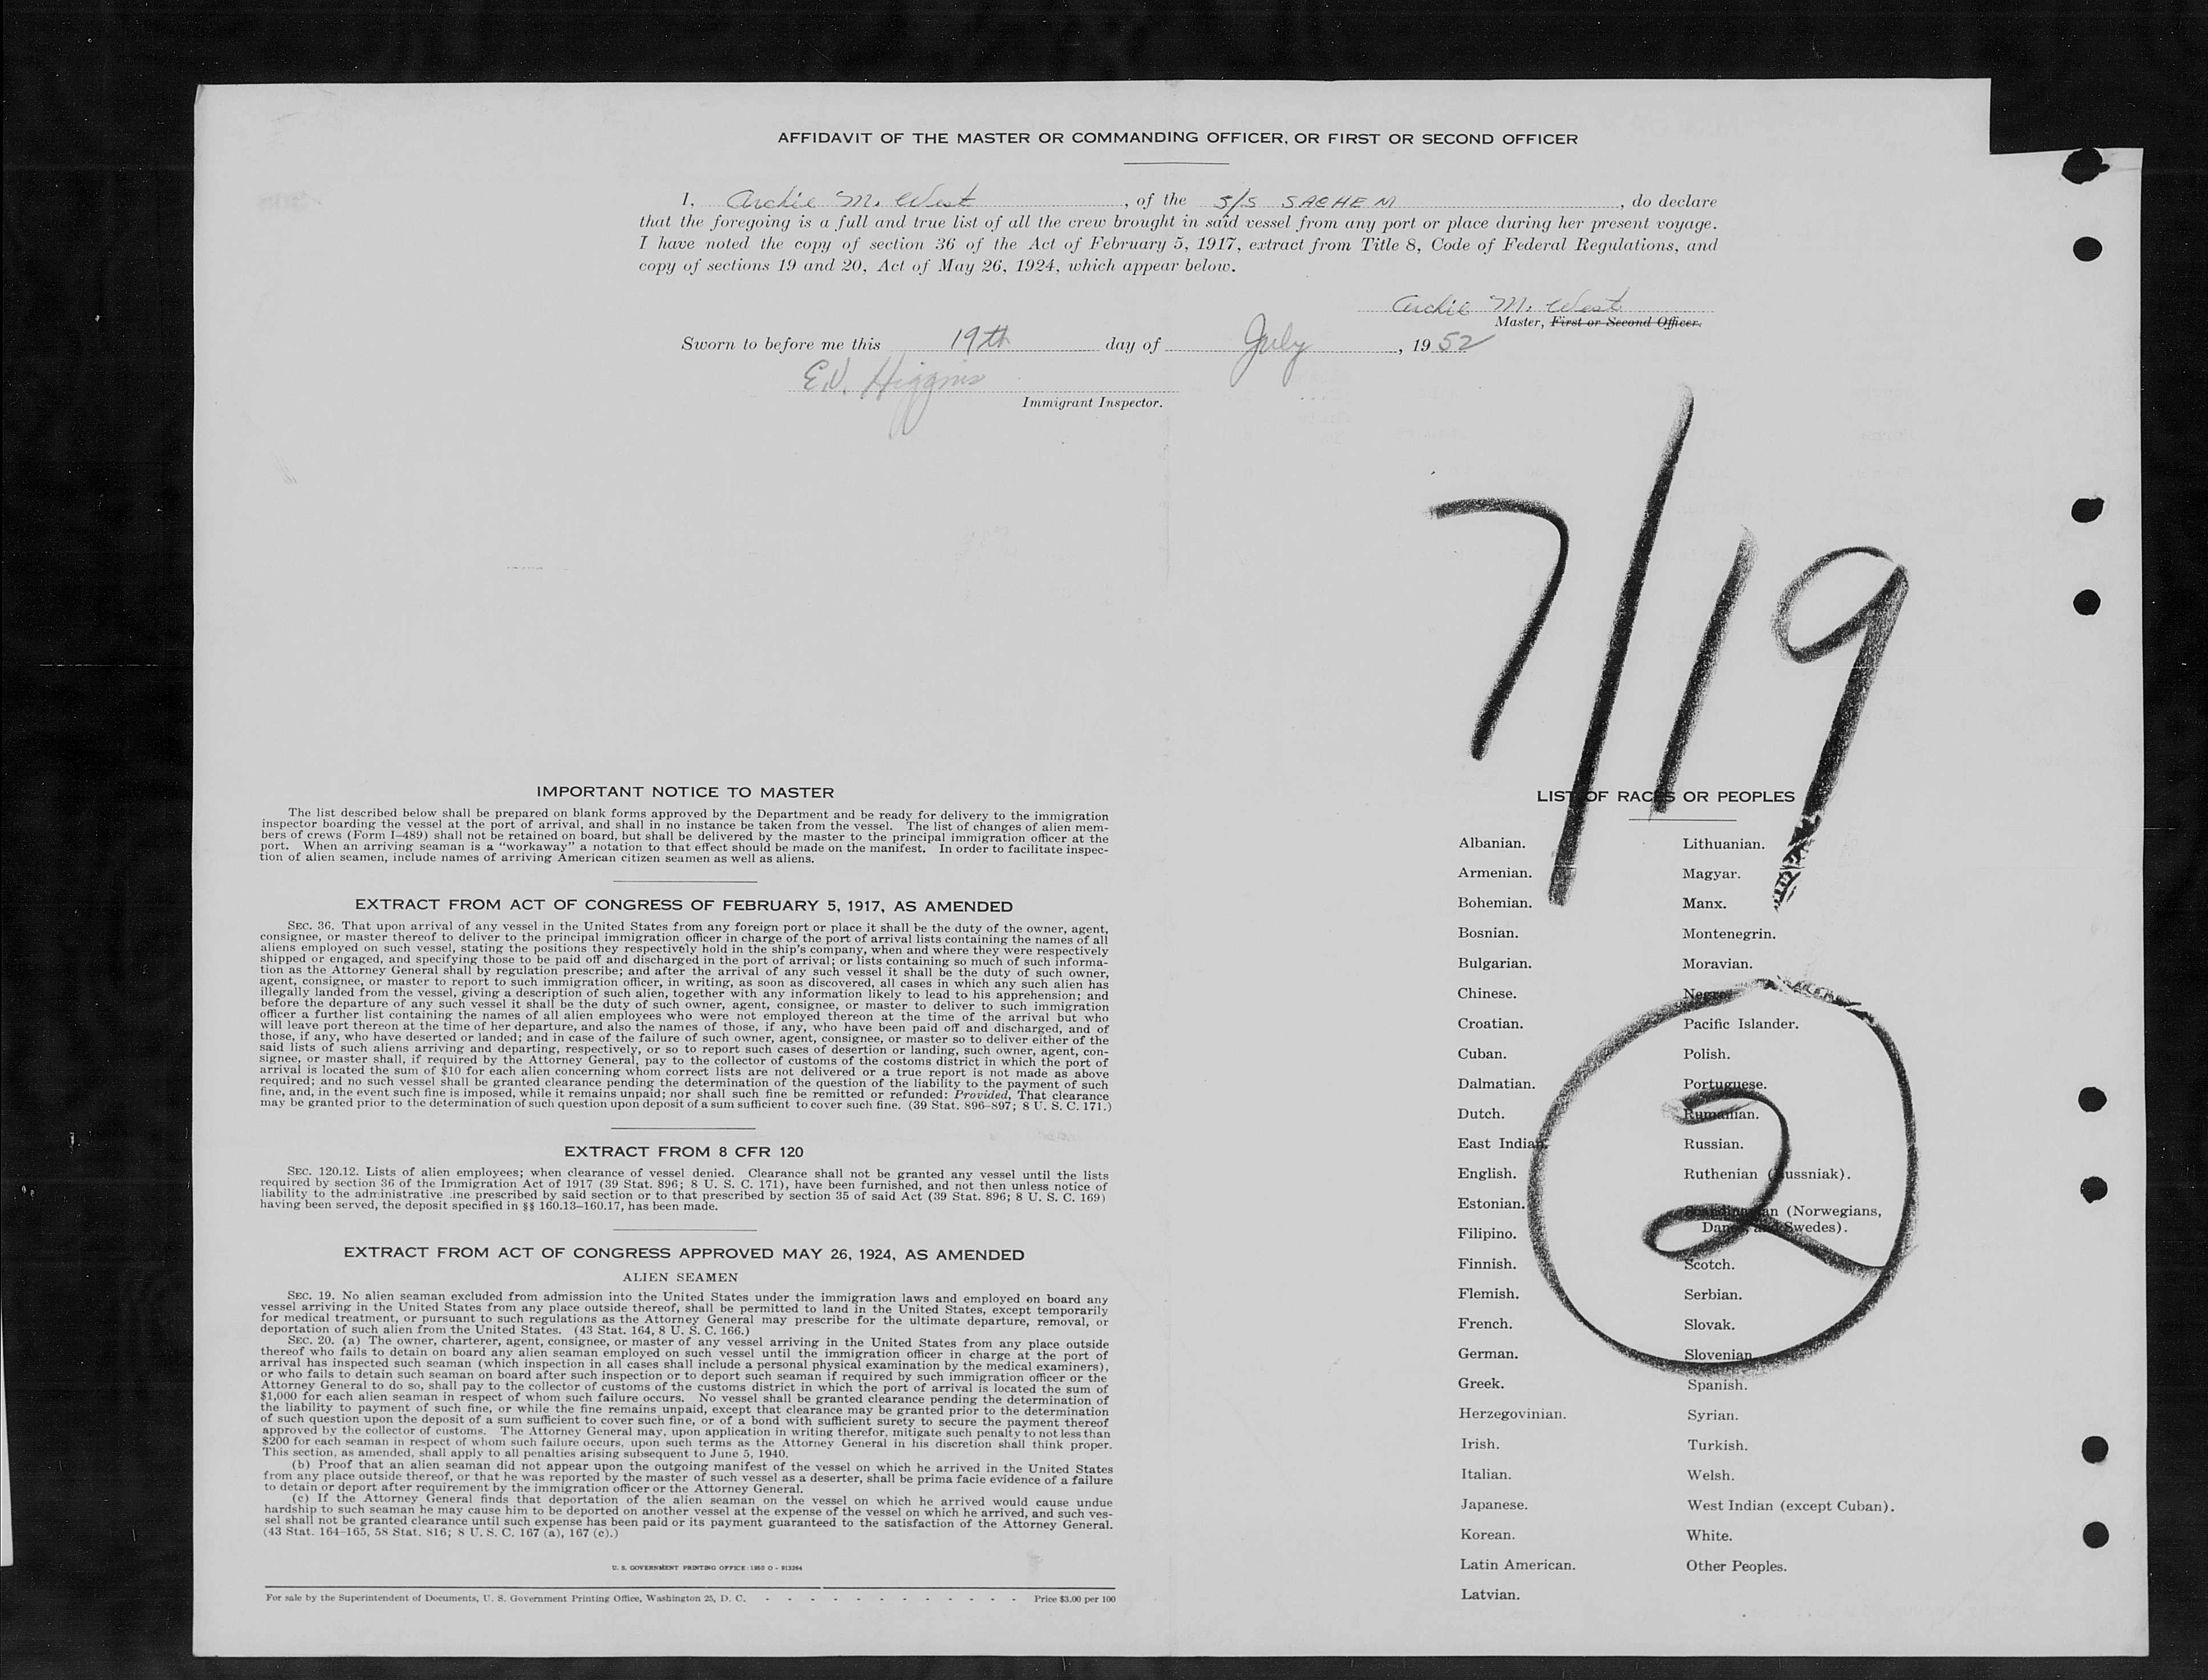 AFFIDAVIT OF THE MASTER OR COMMANDING OFFICER, OR FIRST OR SECOND OFFICER
I, Archie M. West, of the S/S SACHEM, do declare
that the foregoing is a full and true list of all the crew brought in said vessel from any port or place during her present voyage.
I have noted the copy of section 36 of the Act of February 5, 1917, extract from Title 8, Code of Federal Regulations, and
copy of sections 19 and 20, Act of May 26, 1924, which appear below.
Archie M. West
Master, First or Second Officer.
Sworn to before me this 19th day of July, 1952
E.V. Higgins
Immigrant Inspector.
7/19
IMPORTANT NOTICE TO MASTER
The list described below shall be prepared on blank forms approved by the Department and be ready for delivery to the immigration
inspector boarding the vessel at the port of arrival, and shall in no instance be taken from the vessel. The list of changes of alien mem-
bers of crews (Form I-489) shall not be retained on board, but shall be delivered by the master to the principal immigration officer at the
port. When an arriving seaman is a "workaway" a notation to that effect should be made on the manifest. In order to facilitate inspec-
tion of alien seamen, include names of arriving American citizen seamen as well as aliens.
EXTRACT FROM ACT OF CONGRESS OF FEBRUARY 5, 1917, AS AMENDED
SEC. 36. That upon arrival of any vessel in the United States from any foreign port or place it shall be the duty of the owner, agent,
consignee, or master thereof to deliver to the principal immigration officer in charge of the port of arrival lists containing the names of all
aliens employed on such vessel, stating the positions they respectively hold in the ship's company, when and where they were respectively
shipped or engaged, and specifying those to be paid off and discharged in the port of arrival; or lists containing so much of such informa-
tion as the Attorney General shall by regulation prescribe; and after the arrival of any such vessel it shall be the duty of such owner,
agent, consignee, or master to report to such immigration officer, in writing, as soon as discovered, all cases in which any such alien has
illegally landed from the vessel, giving a description of such alien, together with any information likely to lead to his apprehension; and
before the departure of any such vessel it shall be the duty of such owner, agent, consignee, or master to deliver to such immigration
officer a further list containing the names of all alien employees who were not employed thereon at the time of the arrival but who
will leave port thereon at the time of her departure, and also the names of those, if any, who have been paid off and discharged, and of
those, if any, who have deserted or landed; and in case of the failure of such owner, agent, consignee, or master so to deliver either of the
said lists of such aliens arriving and departing, respectively, or so to report such cases of desertion or landing, such owner, agent, con-
signee, or master shall, if required by the Attorney General, pay to the collector of customs of the costoms district in which the port of
arrival is located the sum of $10 for each alien concerning whom correct lists are not delivered or a true report is not made as above
required; and no such vessel shall be granted clearance pending the determination of the question of the liability to the payment of such
fine, and, in the event such fine is imposed, while it remains unpaid; nor shall such fine be remitted or refunded: Provided, That clearance
may be granted prior to the determination of such question upon deposit of a sum sufficient to cover such fine. (39 Stat. 896-897; 8 U. S. C. 171.)
EXTRACT FROM 8 CFR 120
SEC. 120.12. Lists of alien employees; when clearance of vessel denied. Clearance shall not be granted any vessel until the lists
required by section 36 of the Immigration Act of 1917 (39 Stat. 896; 8 U. S. C. 171), have been furnished, and not then unless notice of
liability to the administrative ine prescribed by said section or to that prescribed by section 35 of said Act (39 Stat. 896; 8 U. S. C. 169)
having been served, the deposit specified in §§ 160.13-160.17, has been made.
EXTRACT FROM ACT OF CONGRESS APPROVED MAY 26, 1924, AS AMENDED
ALIEN SEAMEN
SEC. 19. No alien seaman excluded from admission into the United States under the immigration laws and employed on board any
vessel arriving in the United States from any place outside thereof, shall be permitted to land in the United States, except temporarily
for medical treatment, or pursuant to such regulations as the Attorney General may prescribe for the ultimate departure, removal, or
deportation of such alien from the United States. (43 Stat. 164, 8 U. S. C. 166.)
SEC. 20. (a) The owner, charterer, agent, consignee, or master of any vessel arriving in the United States from any place outside
thereof who fails to detain on board any alien seaman employed on such vessel until the immigration officer in charge at the port of
arrival has inspected such seaman (which inspection in all cases shall include a personal physical examination by the medical examiners),
or who fails to detain such seaman on board after such inspection or to deport such seaman if required by such immigration officer or the
Attorney General to do so, shall pay to the collector of customs of the customs district in which the port of arrival is located the sum of
$1,000 for each alien seaman in respect of whom such failure occurs. No vessel shall be granted clearance pending the determination of
the liability to payment of such fine, or while the fine remains unpaid, except that clearance may be granted prior to the determination
of such question upon the deposit of a sum sufficient to cover such fine, or of a bond with sufficient surety to secure the payment thereof
approved by the collector of customs. The Attorney General may, upon application in writing therefor, mitigate such penalty to not less than
$200 for each seaman in respect of whom such failure occurs, upon such terms as the Attorney General in his discretion shall think proper.
This section, as amended, shall apply to all penalties arising subsequent to June 5, 1940.
(b) Proof that an alien seaman did not appear upon the outgoing manifest of the vessel on which he arrived in the United States
from any place outside thereof, or that he was reported by the master of such vessel as a deserter, shall be prima facie evidence of a failure
to detain or deport after requirement by the immigration officer or the Attorney General.
(c) If the Attorney General finds that deportation of the alien seaman on the vessel on which he arrived would cause undue
hardship to such seaman he may cause him to be deported on another vessel at the expense of the vessel on which he arrived, and such ves-
sel shall not be granted clearance until such expense has been paid or its payment guaranteed to the satisfaction of the Attorney General.
(43 Stat. 164-165, 58 Stat. 816; 8 U. S. C. 167 (a), 167 (c).)
U. S. GOVERNMENT PRINTING OFFICE : 1950 O - 913264
For sale by the Superintendent of Documents, U. S. Government Printing Office, Washington 25, D. C. - - - - - - - - - - - - Price $3.00 per 100
LIST OF RACES OR PEOPLES
Albanian.
Armenian.
Bohemian.
Bosnian.
Bulgarian.
Chinese.
Croatian.
Cuban.
Dalmatian.
Dutch.
East Indian.
English.
Estonian.
Filipino.
Finnish.
Flemish.
French.
German.
Greek.
Herzegovinian.
Irish.
Italian.
Japanese.
Korean.
Latin American.
Latvian.
Lithuanian.
Magyar.
Manx.
Montenegrin.
Moravian.
Pacific Islander.
Polish.
Portuguese.
Rumanian.
Russian.
Ruthenian (Russniak).
Scandinavian (Norwegians,
Danes, and Swedes).
Scotch.
Serbian.
Slovak.
Slovenian.
Spanish.
Syrian.
Turkish.
Welsh.
West Indian (except Cuban).
White.
Other Peoples.
2